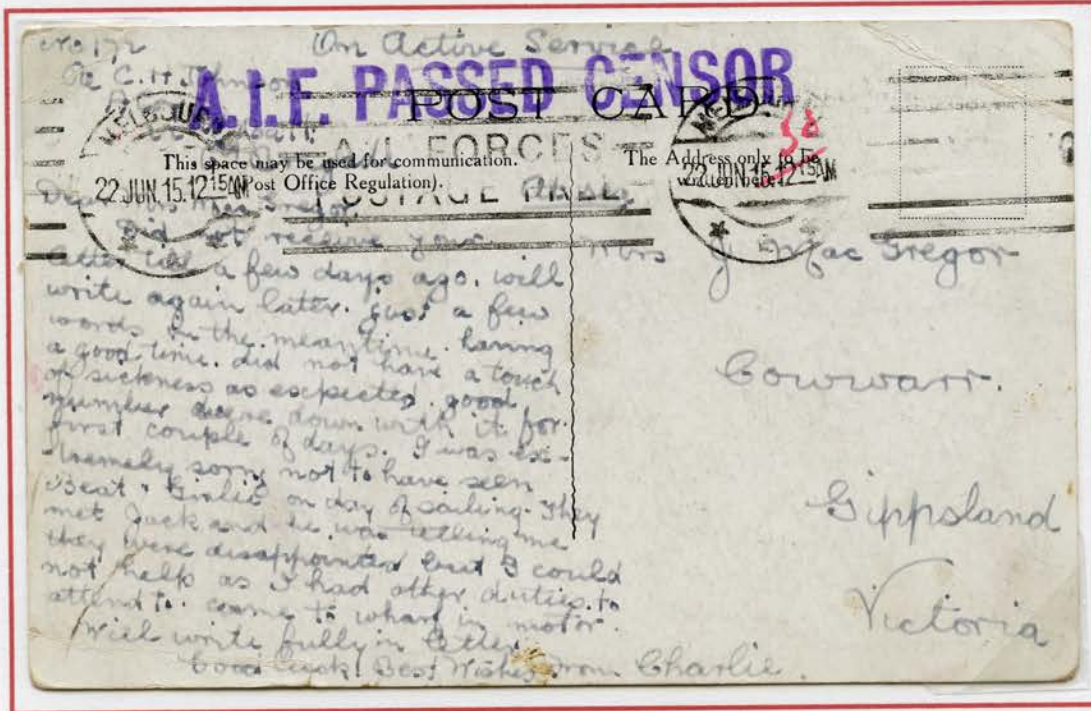 No 172
On Active Service
Pte C. H. Johnson
A.I.F. PASSED CENSOR
POST CARD.
A.I. FORCES
POSTAGE FREE
MELBOURNE
22 JUN. 15. 12 15AM
22 JUN. 15. 12 15AM
38
This space may be used for communication.
(Post Office Regulation).
The Address only to be
written here.
Dear Mrs Mac Gregor,
Did not receive your
letter till a few days ago. will
write again later. just a few
words in the meantime. having
a good time. did not have a touch
of sickness as expected. good
number were down with it for
first couple of days. I was ex-
tremely sorry not to have seen
Beat & Girlie on day of sailing. They
met Jack and he was telling me
they were disappointed but I could
not help as I had other duties to
attend to. came to wharf in motor.
Will write fully in letter.
Good luck Best Wishes from Charlie.
Mrs J Mac Gregor
Cowwarr.
Gippsland
Victoria